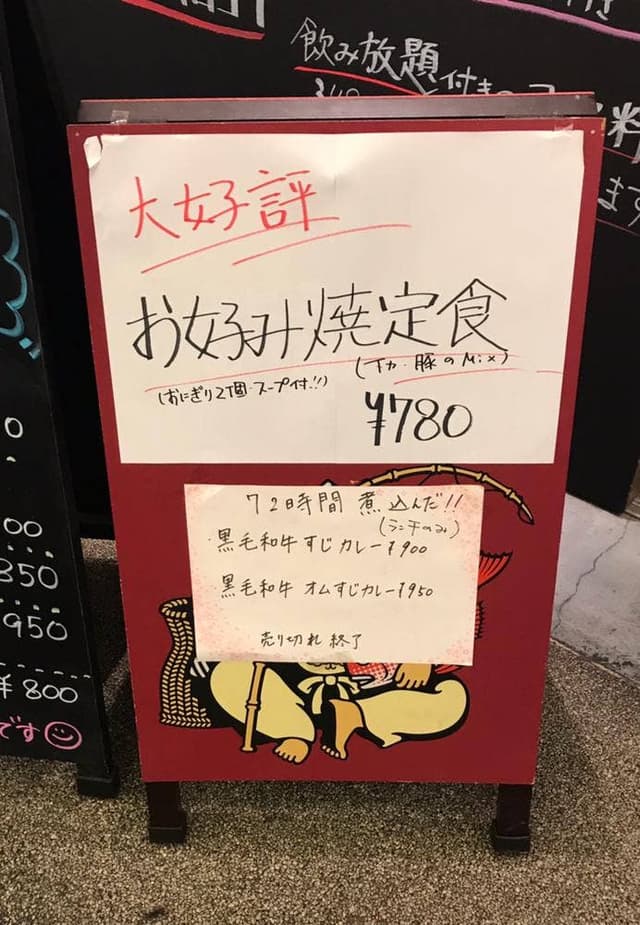 飲み放題付き
大好評
お好み焼定食
(イカ・豚のMix)
(おにぎり2個・スープ付!!)
¥780
72時間 煮込んだ!!
(ランチのみ)
・黒毛和牛 すじカレー ¥900
黒毛和牛 オムすじカレー ¥950
売り切れ 終了
料
ます
0
00
850
950
¥800
です